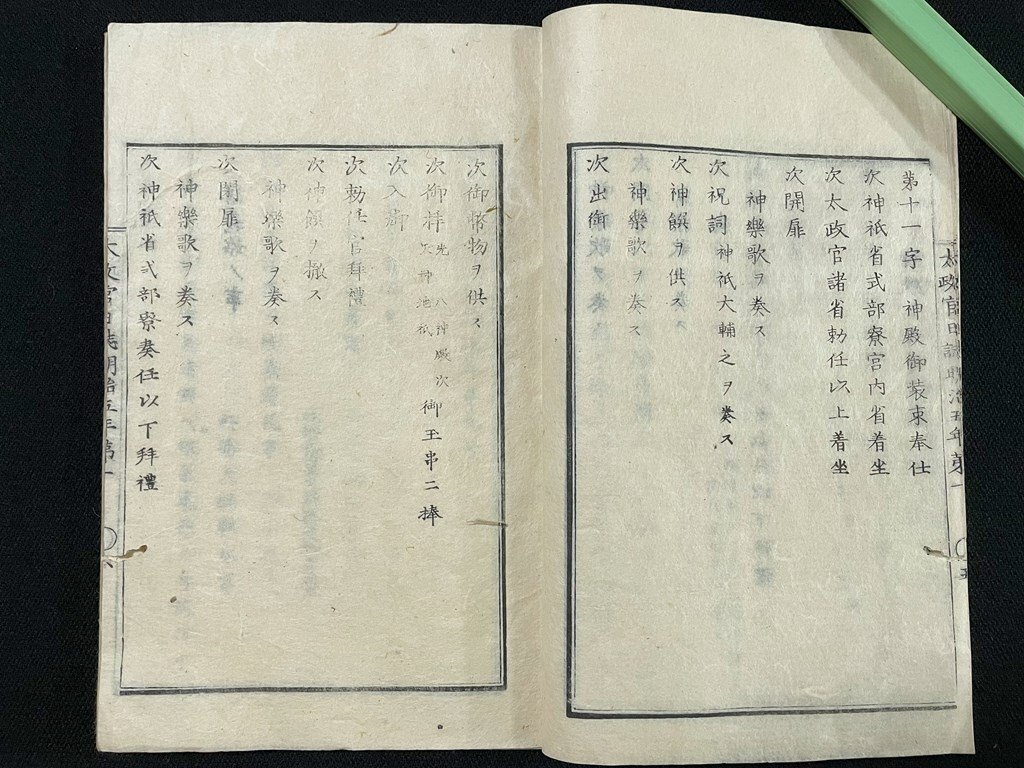 太政官日誌明治五年第一 〇五
第十一字神殿御装束奉仕
次神祇省式部寮宮内省着坐
次太政官諸省勅任以上着坐
次開扉
神樂歌ヲ奏ス
次祝詞神祇大輔之ヲ奏ス
次神饌ヲ供ス
神樂歌ヲ奏ス
次出御
次御幣物ヲ供ス
次御拝先八神殿次御玉串二捧
次入御
次勅任官拜禮
次神饌ヲ撤ス
神樂歌ヲ奏ス
次閉扉
神樂歌ヲ奏ス
次神祇省式部寮奏任以下拜禮
太政官日誌明治五年第一 〇六